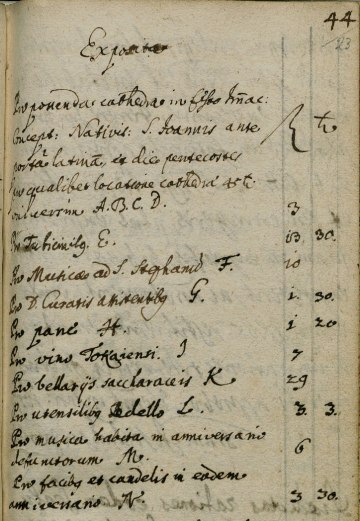 44
23
Exposita
Pro ponenda cathedra in festo Im̃ac:
Concept: Nativit: S. Joannis ante
portã latinã, et die pentecostes
pro qualibet locatione cathedrae 45 t.
solverim A. B. C. D. 3
Pro Tubicinibg E. 13 30.
Pro Musica ad S. Stephanũ F. 10
Pro D. Curatis assistentibg G. 1 30.
Pro pane H. 1 20
Pro vino Tokaiensi. I 7
Pro bellarijs saccharaceis K 29
Pro utensilibg Bedello L. 3 3.
Pro musica habita in anniversario
defunctorum M. 6
Pro facibg et candelis in eodem
anniversario N 3 30.